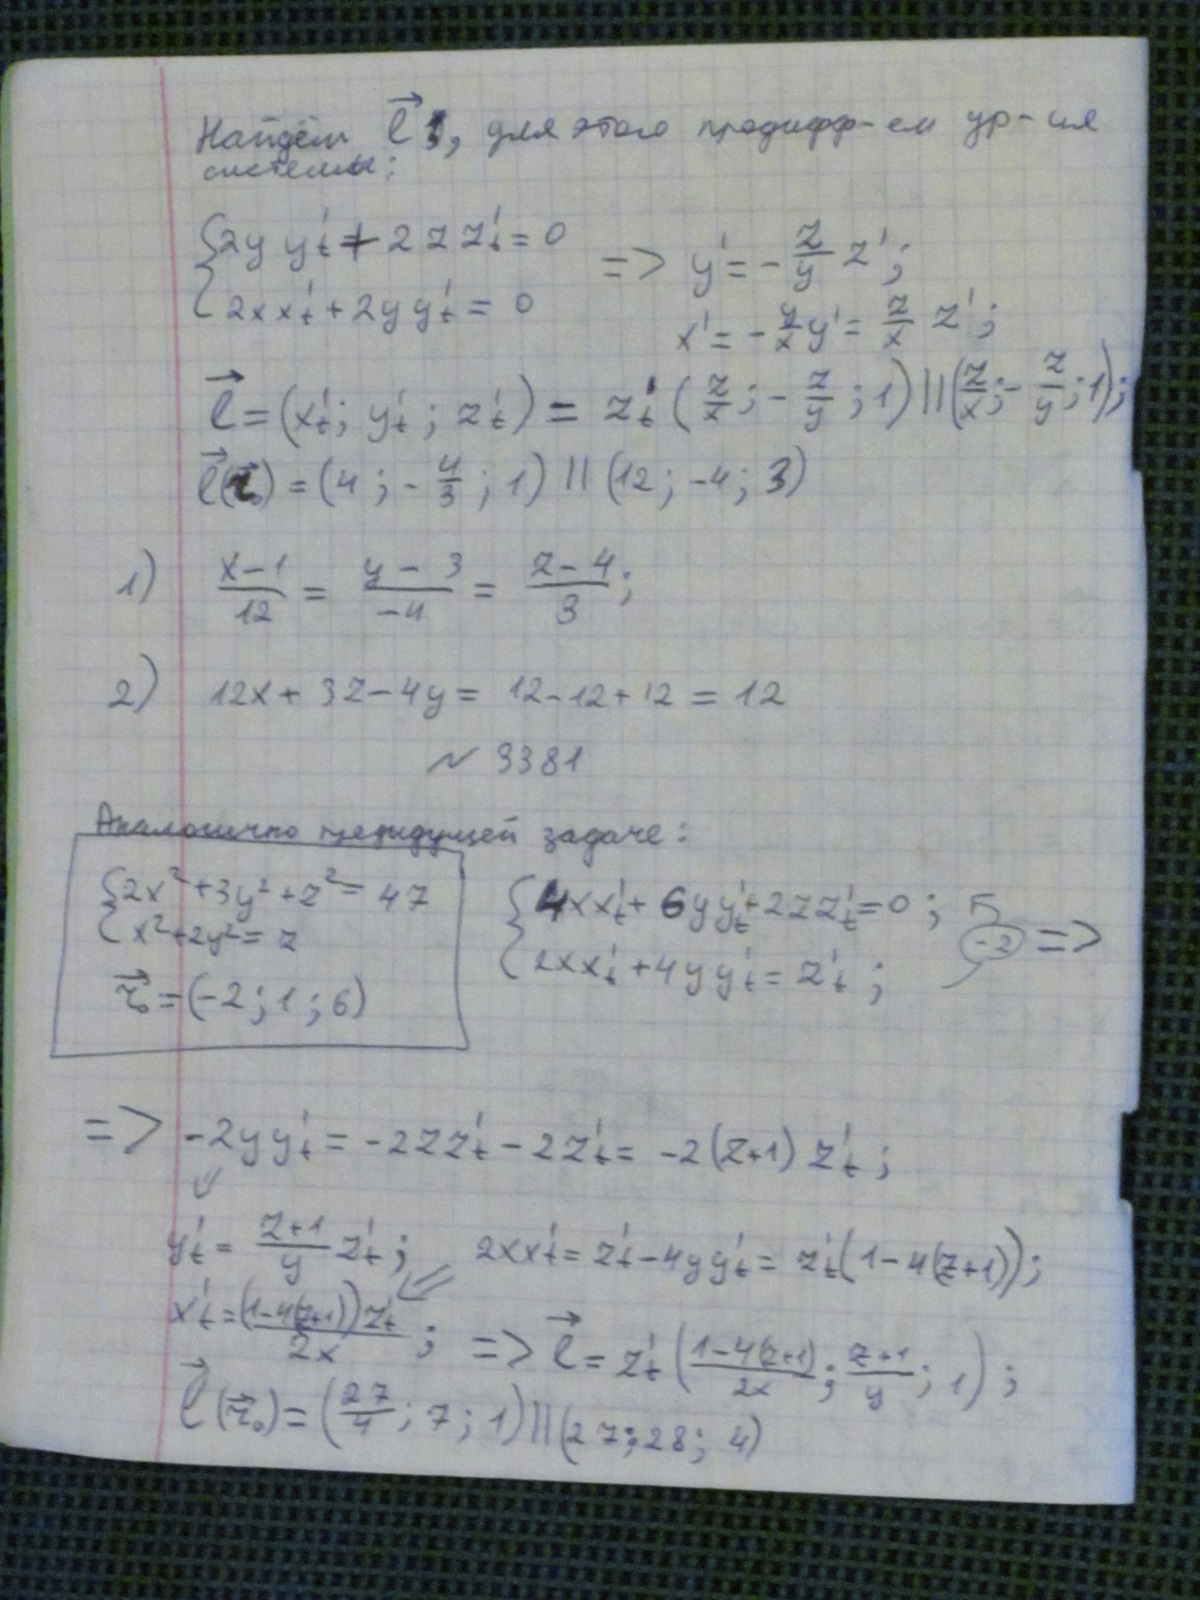 Найдём l⃗, для этого продифф-ем ур-ия
системы:
{2y y't + 2 z z't = 0
{2xx't + 2y y't = 0
=> y' = - z/y z';
x' = - y/x y' = z/x z';
l⃗ = (x't; y't; z't) = z't (z/x; - z/y; 1) || (z/x; - z/y; 1);
l⃗(r⃗₀) = (4; - 4/3; 1) || (12; -4; 3)
1) (x-1)/12 = (y-3)/-4 = (z-4)/3;
2) 12x + 3z - 4y = 12-12+12 = 12
~ 3381
Аналогично предыдущей задаче:
{2x² + 3y² + z² = 47
{x² + 2y² = z
r⃗₀ = (-2; 1; 6)
{4xx't + 6yy't + 2zz't = 0;
{2xx't + 4yy't = z't;
(-2) =>
=> -2yy't = -2zz't - 2z't = -2(z+1) z't;
y't = (z+1)/y z't; 2xx't = z't - 4yy't = z't(1-4(z+1));
x't = (1-4(z+1))z't/2x; => l⃗ = z't ((1-4(z+1))/2x; (z+1)/y; 1);
l⃗(r⃗₀) = (27/4; 7; 1) || (27; 28; 4)